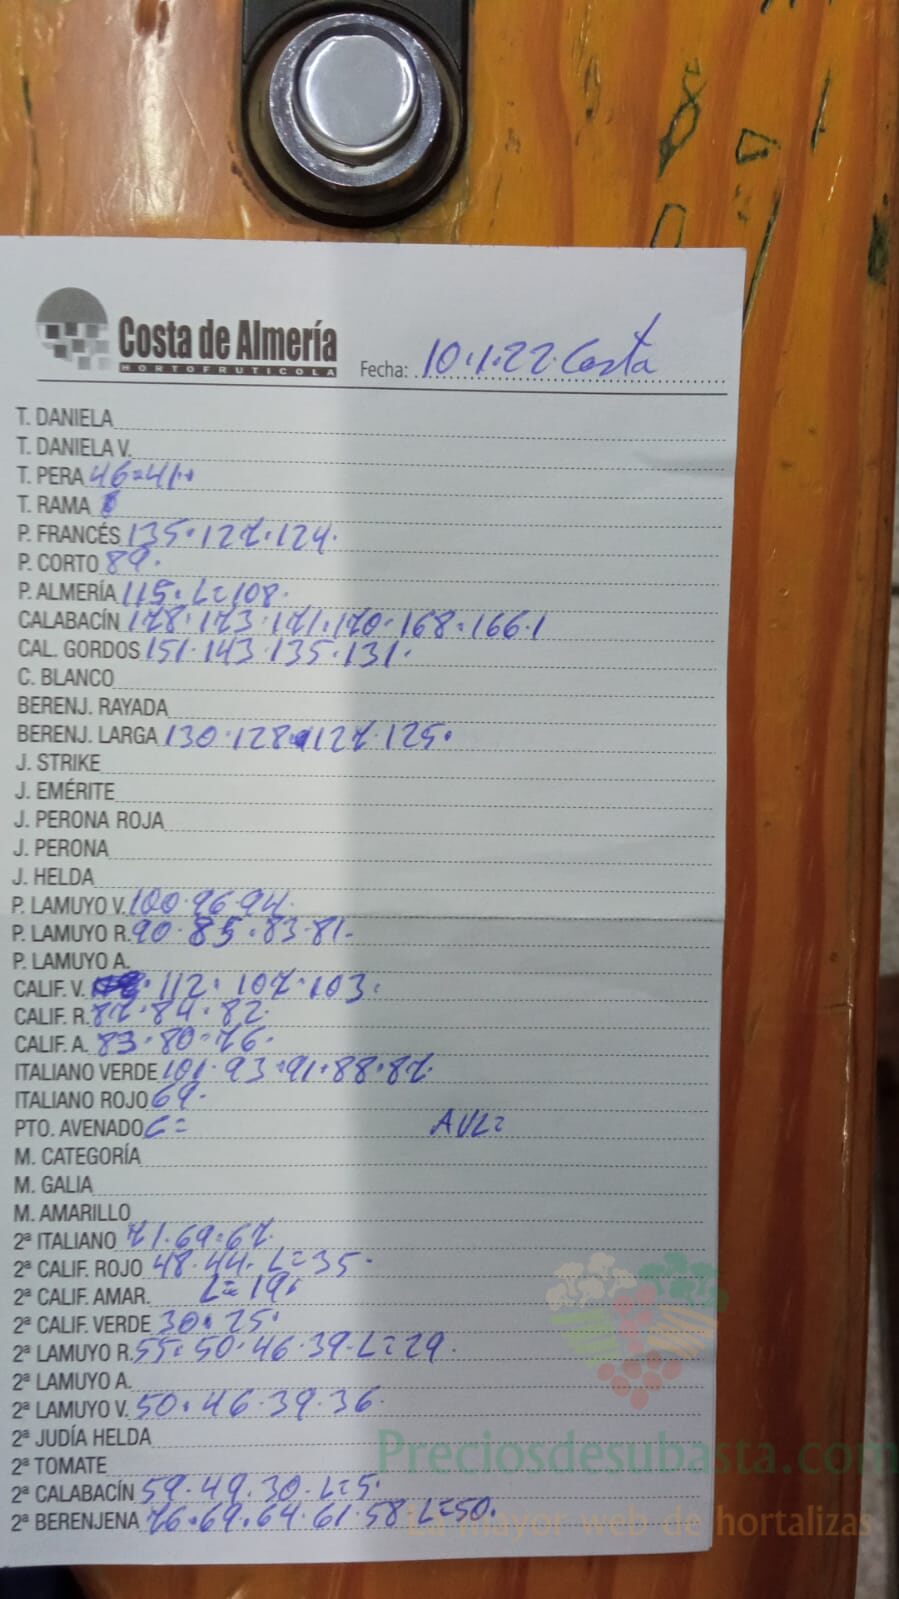 Costa de Almería
HORTOFRUTICOLA
Fecha: 10.1.22 Costa
T. DANIELA
T. DANIELA V.
T. PERA 46=41
T. RAMA
P. FRANCÉS 135.127.124.
P. CORTO 89.
P. ALMERÍA 115. L=108.
CALABACÍN 178.173.171.170.168.166.1
CAL. GORDOS 151.143.135.131.
C. BLANCO
BERENJ. RAYADA
BERENJ. LARGA 130.128.127.125.
J. STRIKE
J. EMÉRITE
J. PERONA ROJA
J. PERONA
J. HELDA
P. LAMUYO V. 100.96.94.
P. LAMUYO R. 90.85.83.81.
P. LAMUYO A.
CALIF. V. 112.107.103.
CALIF. R. 87.84.82.
CALIF. A. 83.80.76.
ITALIANO VERDE 101.93.91.88.87.
ITALIANO ROJO 69.
PTO. AVENADO C= AVL=
M. CATEGORÍA
M. GALIA
M. AMARILLO
2ª ITALIANO 71.69.67.
2ª CALIF. ROJO 48.44. L=35.
2ª CALIF. AMAR. L=19.
2ª CALIF. VERDE 30.25.
2ª LAMUYO R. 55.50.46.39.L=29.
2ª LAMUYO A.
2ª LAMUYO V. 50.46.39.36.
2ª JUDÍA HELDA
2ª TOMATE
2ª CALABACÍN 59.49.30.L=5.
2ª BERENJENA 76.69.64.61.58.L=50.
Preciosdesubasta.com
La mayor web de hortalizas